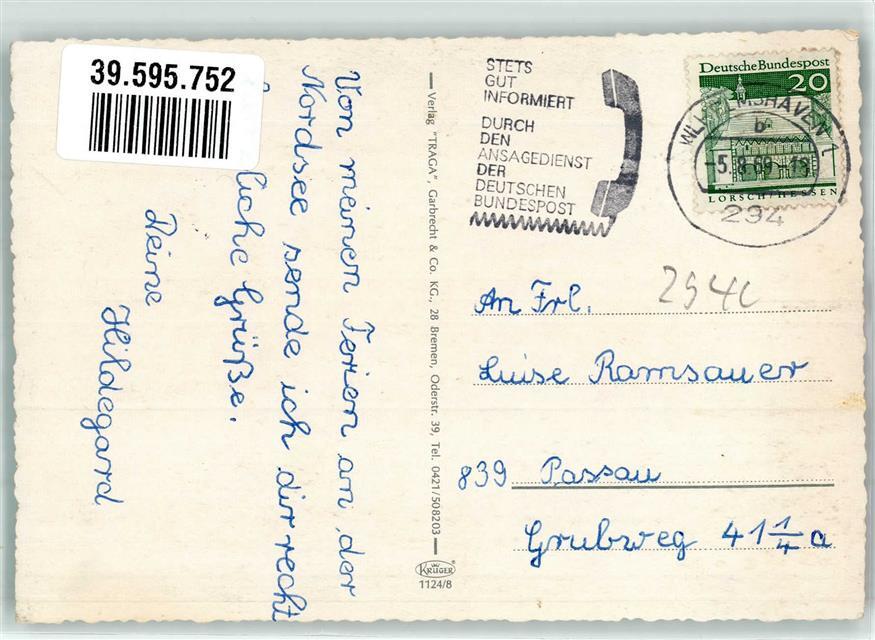 39.595.752
Von meinen Ferien an der
Nordsee sende ich dir recht
liche Grüße.
Deine
Hildegard
Verlag "TRACA", Garbrecht & Co. KG., 28 Bremen, Oderstr. 39, Tel. 0421/508203
KRÜGER
1124/8
STETS
GUT
INFORMIERT
DURCH
DEN
ANSAGEDIENST
DER
DEUTSCHEN
BUNDESPOST
Deutsche Bundespost
20
LORSCH/HESSEN
WILHELMSHAVEN 1
b
-5.8.69-18
294
294c
An Frl.
Luise Ramsauer
839 Passau
Grubweg 41 1/4 a